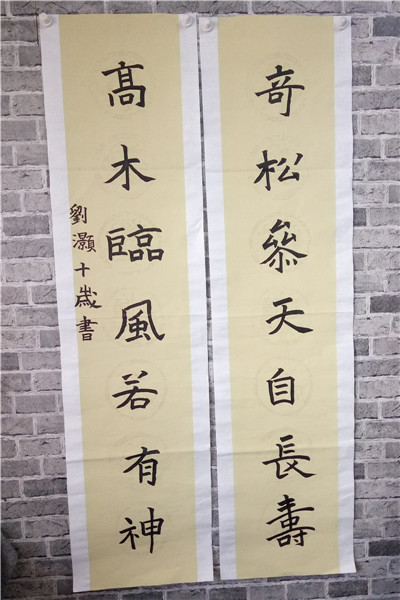 奇松叅天自長壽
髙木臨風若有神
劉灝十歲書